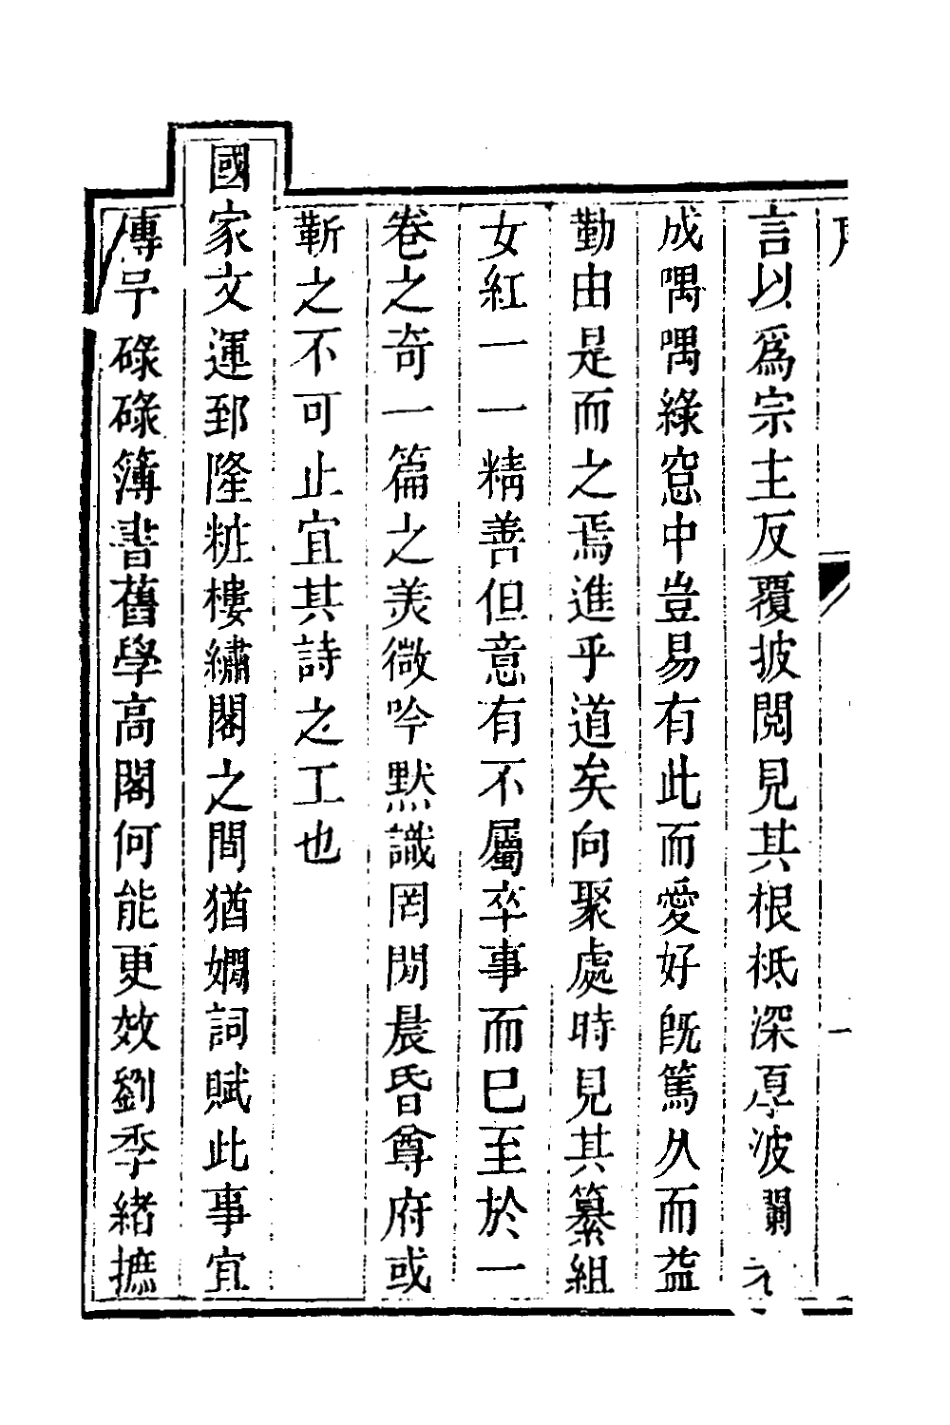 言以爲宗主反覆披閱見其根柢深厚波瀾老
成喁喁綠窓中豈易有此而愛好旣篤久而益
勤由是而之焉進乎道矣向聚處時見其纂組
女紅一一精善但意有不屬卒事而已至於一
卷之奇一篇之美微吟默識罔閒晨昏尊府或
靳之不可止宜其詩之工也
國家文運郅隆粧樓繡閣之間猶嫺詞賦此事宜
傳予碌碌簿書舊學高閣何能更效劉季緒摭